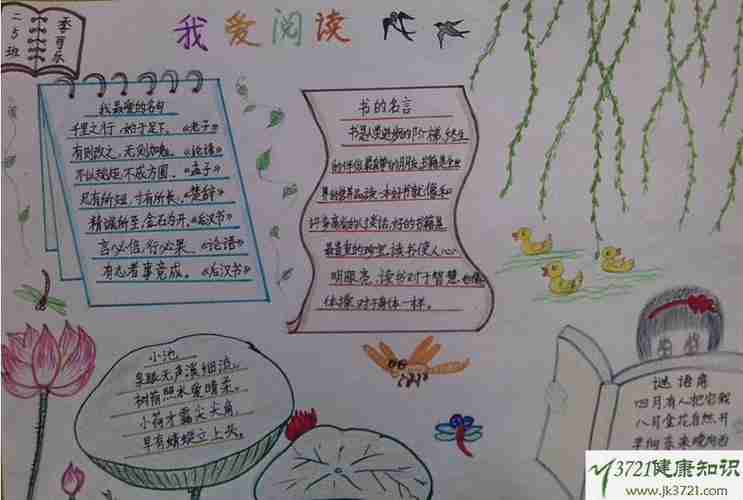 二5班
季可乐
我爱阅读
我最爱的名句
千里之行，始于足下。《老子》
有则改之，无则加勉。《论语》
不以规矩，不成方圆。《孟子》
尺有所短，寸有所长。《楚辞》
精诚所至，金石为开。《后汉书》
言必信，行必果。《论语》
有志者事竟成。《后汉书》
书的名言
书是人类进步的阶梯、终生
的伴侣最真挚的朋友书籍是全世
界的营养品读一本好书就像和
许多高尚的人谈话，好的书籍是
最贵重的珍宝，读书使人心
明眼亮，读书对于智慧，
体操对于身体一样。
小池
泉眼无声惜细流，
树荫照水爱晴柔。
小荷才露尖尖角，
早有蜻蜓立上头。
谜语角
四月有人把它栽
八月金花自然开
早向东来晚向西
3721健康知识
www.jk3721.com